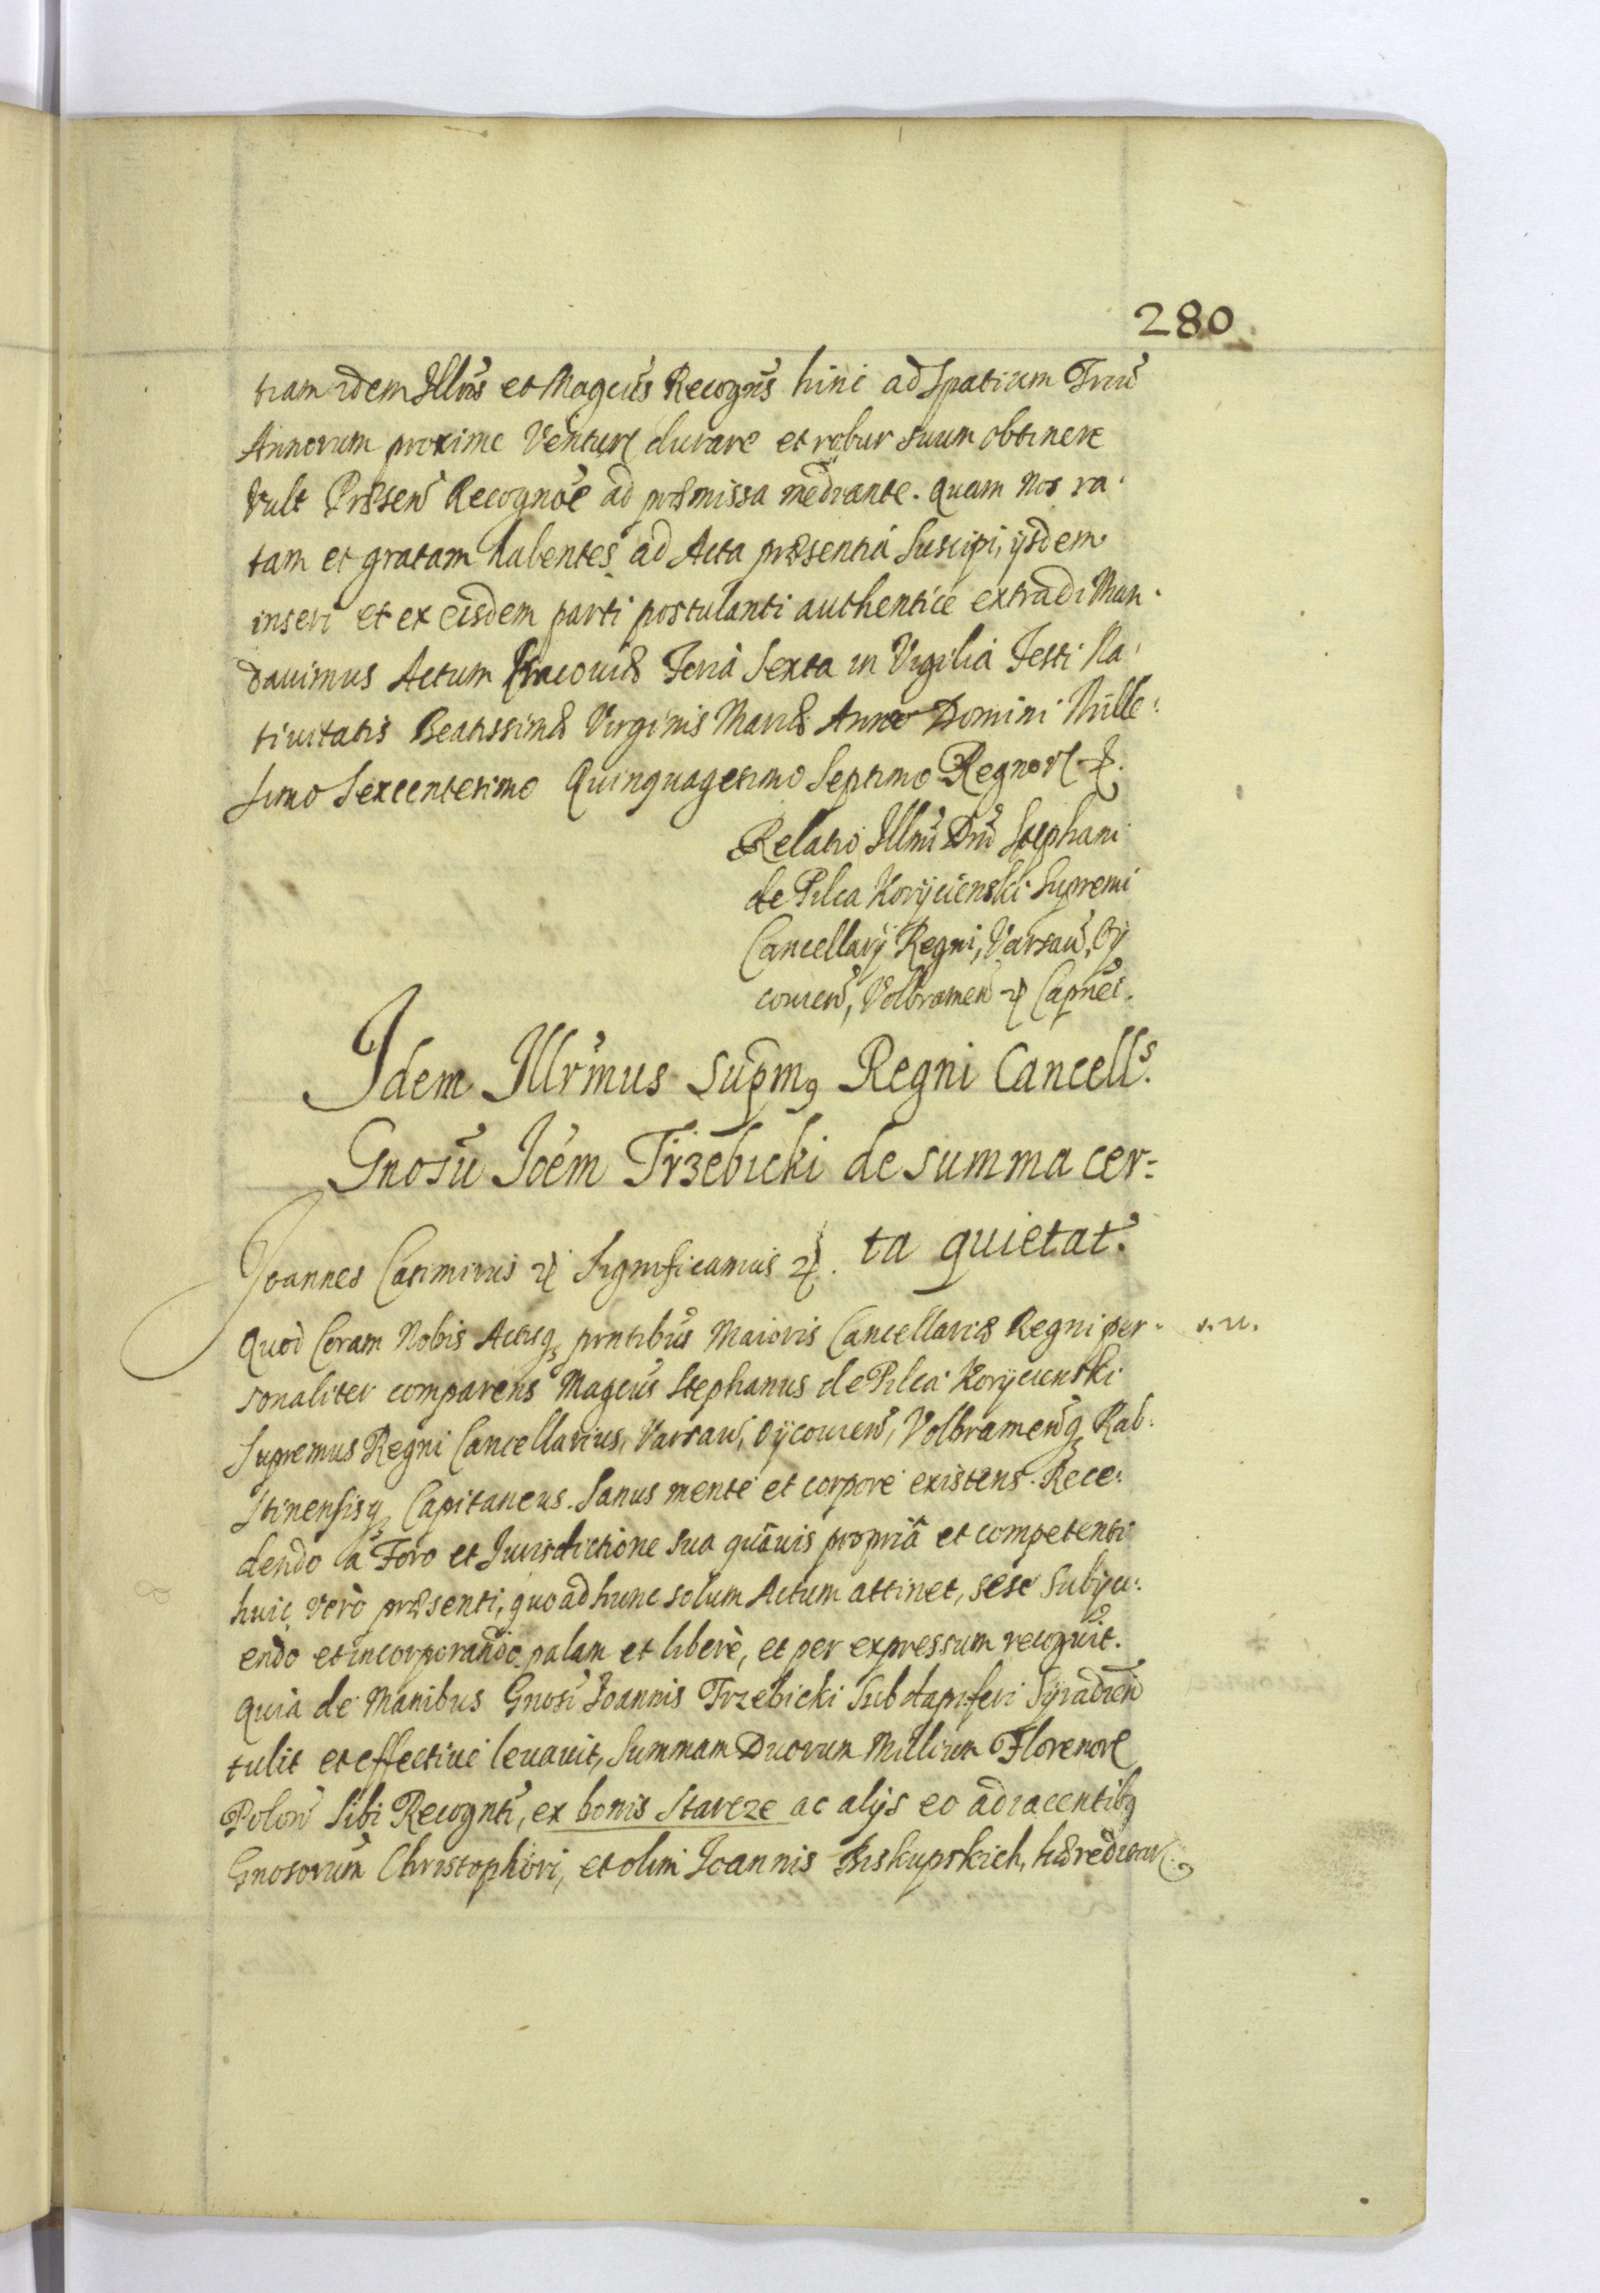 280
tiam idem Illris et Magcus Recogns hinc ad Spatium Triu
Annorum proxime Ventur durare et robur suum obtinere
Vult Præsen Recognoe ad præmissa mediante. Quam nos ra
tam et gratam habentes ad Acta præsentia Suscipi, ijsdem
inseri et ex eisdem parti postulanti authentice extradi Man
davimus Actum Cracoviæ Feria Sexta in Vigilia Festi Na
tivitatis Beatissimæ Virginis Mariæ Anno Domini Mille
simo Sexcentesimo Quinquagesimo Septimo Regnor &.
Relatio Illmi Dni Stephani
de Pilca Korycienski Supremi
Cancellarij Regni, Varsau, Oij
couien, Volbramen & Capnei.
Idem Illr̃mus Supm9 Regni Cancell.s
Gnosu Joem Trzebicki de summa cer=
ta quietat.
Joannes Casimirus & Significamus &.
Quod Coram Nobis Actisq3 prntibus Maioris Cancellariæ Regni per
sonaliter comparens Magcus Stephanus de Pilca Koryciński
Supremus Regni Cancellarius, Varsau, Oijcouien, Volbramenq3 Rab
stinensisq3 Capitaneus. Sanus mente et corpore existens. Rece
dendo à Foro et Jurisdictione sua quãvis propriâ et competenti
huic verò præsenti, quo ad hunc solum Actum attinet, sese Subijci
endo et incorporando palam et liberè, et per expressum recognvit.
Quia de Manibus Gnosi Joannis Trzebicki Subdapiferi Syradien
tulit et effective levavit, Summam Duorum Millium Florenor
Polon Sibi Recognti, ex bonis Starcze ac alijs eo adiacentibq
Gnosorum Christophori, et olim Joannis Biskupskich, hæreditar